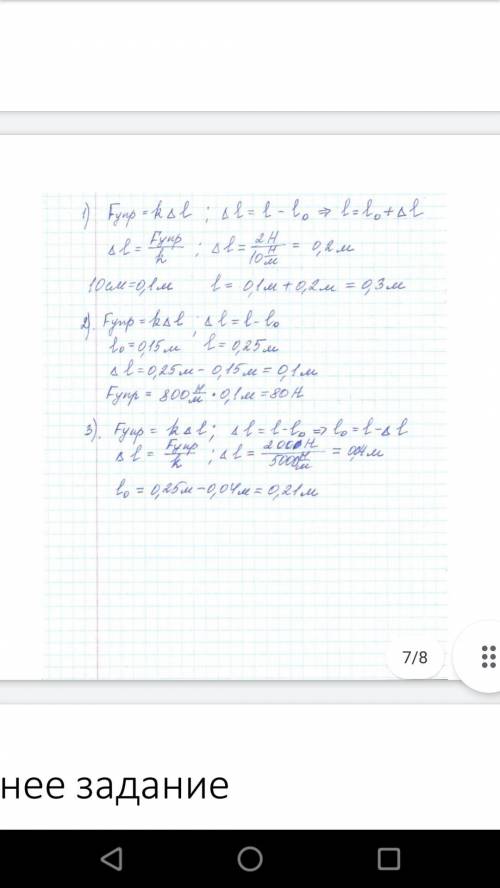 1) Fупр = kΔl ; Δl = l - l₀ ⇒ l = l₀ + Δl
Δl = Fупр/k ; Δl = 2Н/10 Н/м = 0,2м
10см = 0,1м l = 0,1м + 0,2м = 0,3м
2). Fупр = kΔl ; Δl = l - l₀
l₀ = 0,15м l = 0,25м
Δl = 0,25м - 0,15м = 0,1м
Fупр = 800 Н/м · 0,1м = 80Н
3). Fупр = kΔl ; Δl = l - l₀ ⇒ l₀ = l - Δl
Δl = Fупр/k ; Δl = 200Н/5000 Н/м = 0,04м
l₀ = 0,25м - 0,04м = 0,21м
7/8
нее задание